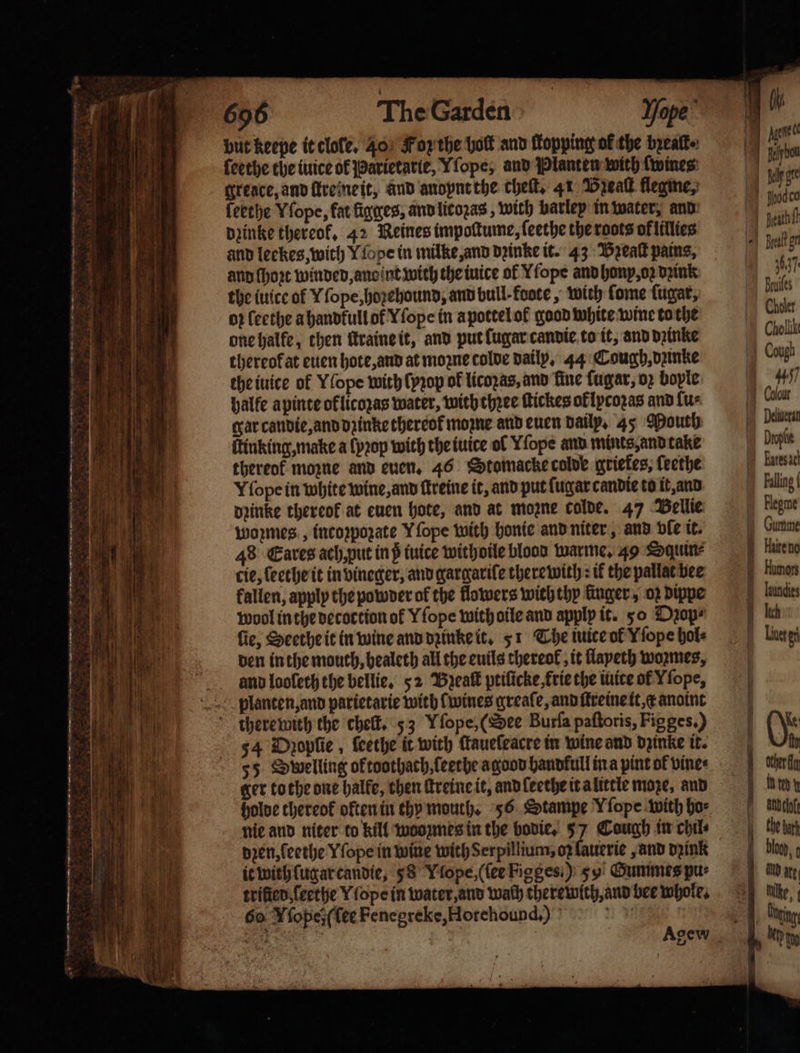 696 The Garden Yſope
but keepe it cloſe. 40 For the hoſt and ſtopping of the breaſt⸗
ſeethe the iuice of Parietarie, Yſope, and Planten with ſwines
greace, and ſtreine it, and anoynt the cheſt. 41 Breaſt flegme,
ſeethe Yſope, fat figges, and licoras, with barley in water, and
drinke thereof. 42 Reines impoſtume, ſeethe the roots of lillies
and leekes, with Yſope in milke, and drinke it. 43 Breaſt pains,
and ſhort winded, anoint with the iuice of Yſope and hony, or drink
the iuice of Yſope, horehound, and bull-foote, with ſome ſugar,
or ſeethe a handfull of Yſope in a pottel of good white wine to the
one halfe, then ſtraine it, and put ſugar candie to it, and drinke
thereof at euen hote, and at morne colde daily. 44 Cough, drinke
the iuice of Yſope with ſyrop of licoras, and fine ſugar, or boyle
halfe a pinte of licoras water, with three ſtickes of lycoras and ſu⸗
gar candie, and drinke thereof morne and euen daily. 45 Mouth
ſtinking, make a ſyrop with the iuice of Yſope and mints, and take
thereof morne and euen. 46 Stomacke colde griefes, ſeethe
Yſope in white wine, and ſtreine it, and put ſugar candie to it, and
drinke thereof at euen hote, and at morne colde. 47 Bellie
wormes, incorporate Yſope with honie and niter, and vſe it.
48 Eares ach, put in þͤ iuice with oile blood warme. 49 Squin⸗
cie, ſeethe it in vineger, and gargariſe therewith: if the pallat bee
fallen, apply the powder of the flowers with thy finger, or dippe
wool in the decoction of Yſope with oile and apply it. 50 Drop⸗
ſie, Seethe it in wine and drinke it. 51 The iuice of Yſope hol⸗
den in the mouth, healeth all the euils thereof, it ſlayeth wormes,
and looſeth the bellie. 52 Breaſt ptiſicke, frie the iuice of Yſope,
planten, and parietarie with ſwines greaſe, and ſtreine it, & anoint
therewith the cheſt. 53 Yſope, (See Burſa paſtoris, Figges.)
54 Dropſie, ſeethe it with ſtaueſeacre in wine and drinke it.
55 Swelling of toothach, ſeethe a good handfull in a pint of vine⸗
ger to the one halfe, then ſtreine it, and ſeethe it a little more, and
holde thereof often in thy mouth. 56 Stampe Yſope with ho⸗
nie and niter to kill woormes in the bodie. 57 Cough in chil⸗
dren, ſeethe Yſope in wine with Serpillium, or ſauerie, and drink
it with ſugar candie, 58 Yſope, (ſee Figges.) 59 Gummes pu⸗
trified, ſeethe Yſope in water, and waſh therewith, and bee whole.
60 Yſope, (ſee Fenegreke, Horehound.)
Agew
Belly gre
Blood co
Breaſt gr
36.37
Bruiſes
Choler
Cough
44.57
Colour
Deliueran
Dropſie
Eares ach
Falling
Flegme
Gumme
Haire no
Humors
Iaundies
Itch
other
the bark
milke,